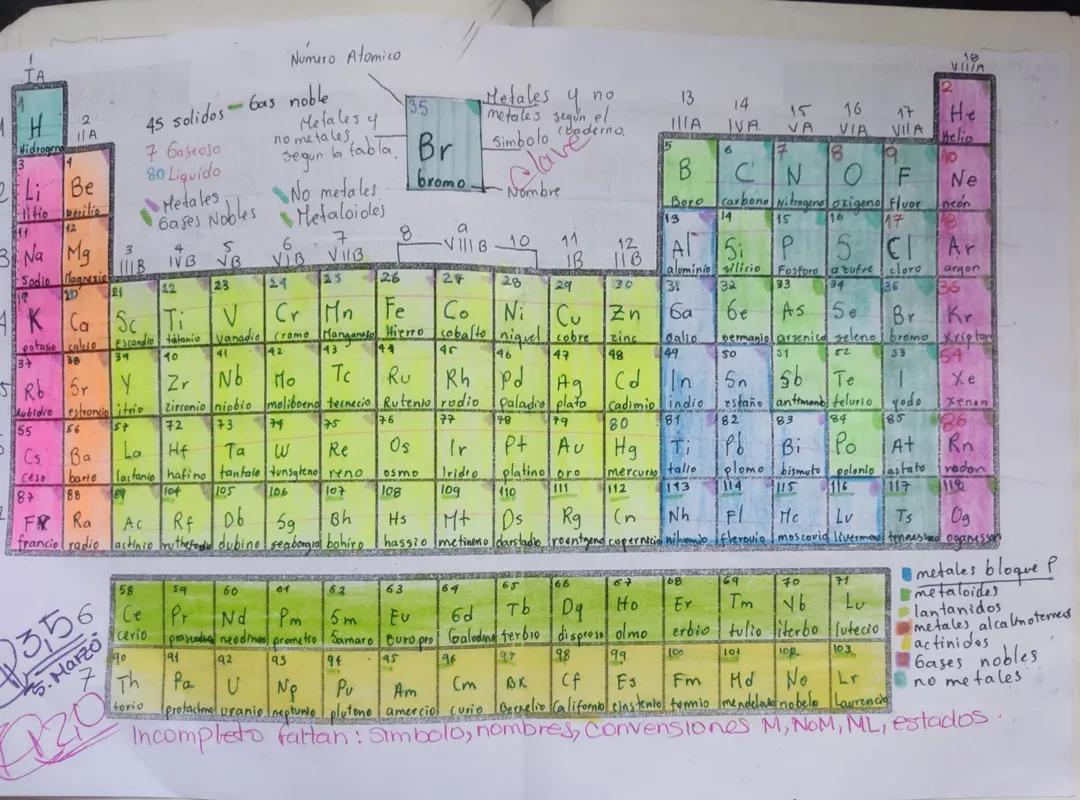 Número Atomico
1
IA
2
IIA
45 solidos
Gas noble
7 Gaseoso
80 Liquido
Metales
Gases Nobles
No metales
Metaloides
Metales y
no metales
según la tabla.
35
Br
bromo
Metales y no
metales según el
cuaderno.
simbolo
Clave
Nombre
13 14 15 16 17 18
IIIA IVA VA VIA VIIA VIIIA
3 4 5 6 7 8 9 10 11 12
IIIB IVB VB VIB VIIB VIIIB IB IIB
1 2
H He
Hidrogeno Helio
3 4 5 6 7 8 9 10
Li Be B C N O F Ne
litio berilio Boro carbono Nitrogeno oxigeno fluor neón
11 12 13 14 15 16 17 18
Na Mg Al Si P S Cl Ar
Sodio Magnesio aluminio silicio Fosforo azufre cloro argon
19 20 21 22 23 24 25 26 27 28 29 30 31 32 33 34 35 36
K Ca Sc Ti V Cr Mn Fe Co Ni Cu Zn Ga Ge As Se Br Kr
potasio calcio Escandio titanio vanadio cromo Manganeso Hierro cobalto niquel cobre zinc Galio germanio arsenico seleno bromo Kripton
37 38 39 40 41 42 43 44 45 46 47 48 49 50 51 52 53 54
Rb Sr Y Zr Nb Mo Tc Ru Rh Pd Ag Cd In Sn Sb Te I Xe
Rubidio estroncio itrio zirconio niobio molibdeno tecnecio Rutenio rodio Paladio plata cadimio indio estaño antimonio telurio yodo Xenon
55 56 57 72 73 74 75 76 77 78 79 80 81 82 83 84 85 86
Cs Ba La Hf Ta W Re Os Ir Pt Au Hg Ti Pb Bi Po At Rn
ceso bario lantanio hafino tantalo tunsgteno reno osmo Iridio platino oro mercurio talio plomo bismuto polonio astato radon
87 88 89 104 105 106 107 108 109 110 111 112 113 114 115 116 117 118
Fr Ra Ac Rf Db Sg Bh Hs Mt Ds Rg Cn Nh Fl Mc Lv Ts Og
francio radio actinio dubino seaborgio bohiro hassio metinero darstadio roentgeno copernicio nihomio flerovio moscovio oganesson
58 59 60 61 62 63 64 65 66 67 68 69 70 71
Ce Pr Nd Pm Sm Eu Gd Tb Dy Ho Er Tm Yb Lu
cerio neodimio prometio Samaro Europro terbio disproso olmo erbio tulio iterbo lutecio
90 91 92 93 94 95 96 97 98 99 100 101 102 103
Th Pa U Np Pu Am Cm BK Cf Es Fm Md No Lr
torio uranio neptunio plutono amercio curio einstenio fermio nobelo Laurencio
metales bloque P
metaloides
lantanidos
metales alcalinoterreos
actinidos
Gases nobles
no metales
6
7
3,5
5. Marzo
2,0
Incompleto faltan: simbolo, nombres, convensiones M, NoM, ML, estados.